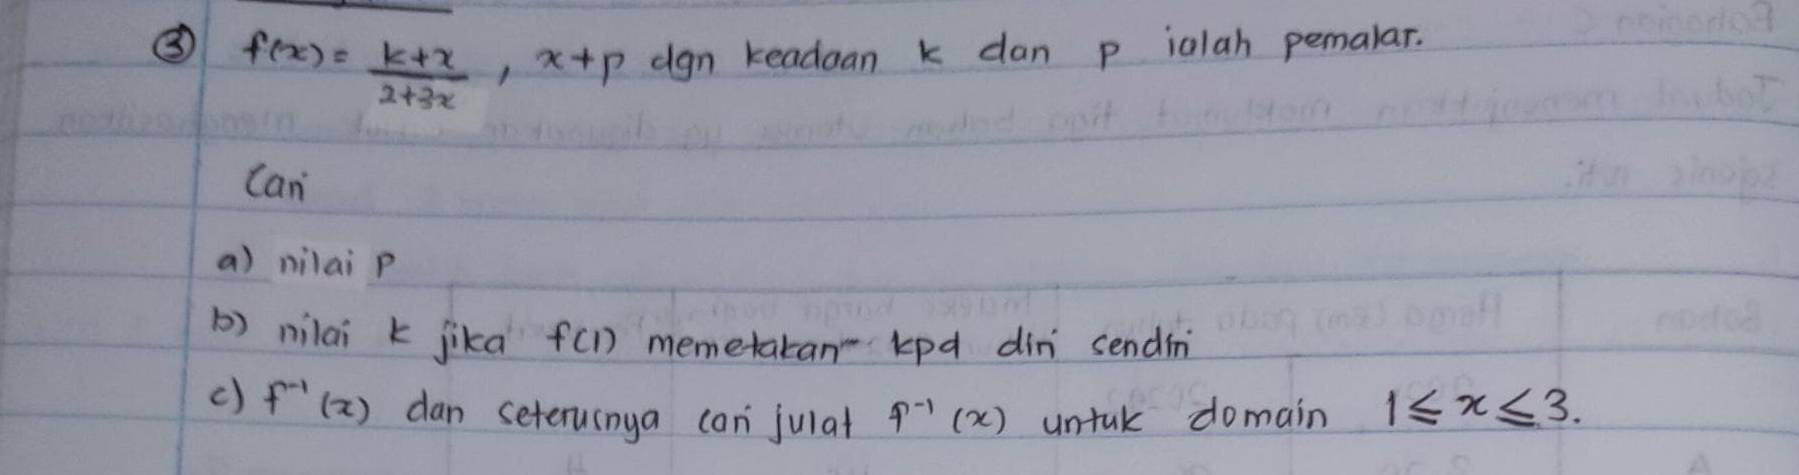 ③ f(x) = k+x / 2+3x , x+p dgn keadaan k dan p ialah pemalar.
Cari
a) nilai p
b) nilai k jika f(1) memetakan kpd diri sendiri
c) f⁻¹(x) dan seterusnya cari julat f⁻¹(x) untuk domain 1 ≤ x ≤ 3.